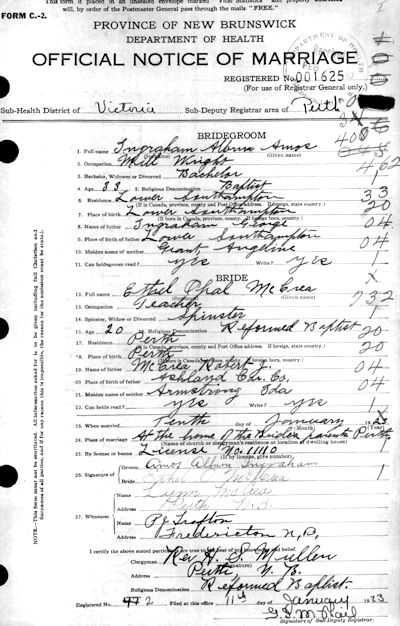 FORM C.-2.
will, by order of the Postmaster General pass through the mails "FREE."
PROVINCE OF NEW BRUNSWICK
DEPARTMENT OF HEALTH
OFFICIAL NOTICE OF MARRIAGE
REGISTERED No. 001625
(For use of Registrar General only.)
Sub-Health District of Victoria Sub-Deputy Registrar area of Perth
BRIDEGROOM
403
1. Full name Ingraham Albion Amos
(Given name)
2. Occupation Mill Wright 402
3. Bachelor, Widower or Divorced Bachelor 1
4. Age 33 5. Religious Denomination Baptist
6. Residence Lower Southampton 33
(If in Canada, province, county and Post Office address. If foreign, state country.)
7. Place of birth Lower Southampton 20
(If born in Canada, province, county. If foreign born, country.)
8. Name of father Ingraham George 04
9. Place of birth of father Lower Southampton 04
10. Maiden name of mother Grant
11. Can bridegroom read? yes Write? yes 1
BRIDE X
12. Full name Ethel Phal McCrea
(Given name)
13. Occupation Teacher 732
14. Spinster, Widow or Divorced Spinster 1
15. Age 20 16. Religious Denomination Reformed Baptist
17. Residence Perth 20
(If in Canada, province, county and Post Office address. If foreign, state country.)
18. Place of birth Perth 20
(If born in Canada, province, county. If foreign born, country.)
19. Name of father McCrea Robert J. 04
20. Place of birth of father Ashland Car. Co. 04
21. Maiden name of mother Armstrong Ida
22. Can bride read? yes Write? yes 1
23. When married Tenth day of January 1923
(Month) (Year)
24. Place of marriage At the home of the Brides parents Perth
(Name of church or clergyman's residence or location of dwelling house)
25. By license or banns License No. 11110 1
(If by license, give number)
26. Signature of
Groom Amos Albion Ingraham
Bride Ethel McCrea
27. Witnesses
Name Lynn McCrea
Address Perth N.B.
Name P J Trafton
Address Fredericton N.B.
I certify the above stated particulars are true to the best of my knowledge and belief.
Clergyman Rev. H. S. Mullen
Address Perth N. B.
Religious Denomination Reformed Baptist
Registered No. 2 Filed at this office 11th day of January 1923
Signature of Sub-Deputy Registrar.
NOTE.—This form must not be mutilated. All information asked for is to be given including full Christian and Surnames of all parties, and if for any reason this is impossible, the reason for the omission must be stated.